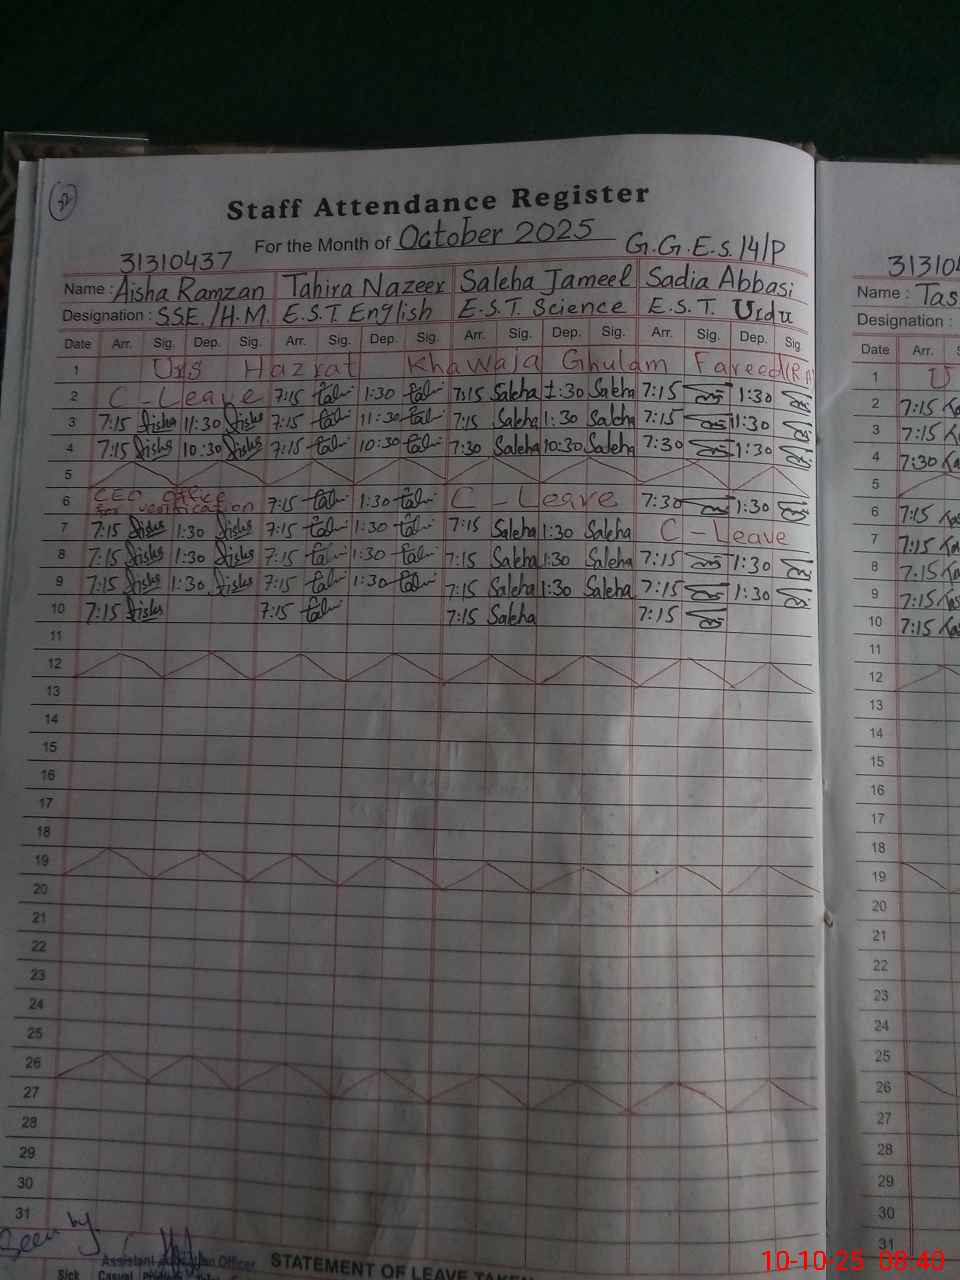 32
Staff Attendance Register
For the Month of October 2025 G.G.E.S 14/P
31310437
Name : Aisha Ramzan Tahira Nazeer Saleha Jameel Sadia Abbasi
Designation : S.S.E./H.M. E.S.T English E.S.T. Science E.S.T. Urdu
Date Arr. Sig. Dep. Sig. Arr. Sig. Dep. Sig. Arr. Sig. Dep. Sig. Arr. Sig. Dep. Sig.
1 Urs Hazrat Khawaja Ghulam Fareed (R.A)
2 C-Leave 7:15 1:30 7:15 Saleha 1:30 Saleha 7:15 1:30
3 7:15 11:30 7:15 11:30 7:15 Saleha 1:30 Saleha 7:15 11:30
4 7:15 10:30 7:15 10:30 7:30 Saleha 10:30 Saleha 7:30 1:30
5
6 CEO office for verification 7:15 1:30 C-Leave 7:30 1:30
7 7:15 1:30 7:15 1:30 7:15 Saleha 1:30 Saleha C-Leave
8 7:15 1:30 7:15 1:30 7:15 Saleha 1:30 Saleha 7:15 1:30
9 7:15 1:30 7:15 1:30 7:15 Saleha 1:30 Saleha 7:15 1:30
10 7:15 7:15 7:15 Saleha 7:15
11
12
13
14
15
16
17
18
19
20
21
22
23
24
25
26
27
28
29
30
31
Seen by
Assistant Officer
STATEMENT OF LEAVE TAKEN
Sick Casual
31310
Name : Tas
Designation :
Date Arr. S
1 U
2 7:15
3 7:15
4 7:30
5
6 7:15
7 7:15
8 7:15
9 7:15
10 7:15
11
12
13
14
15
16
17
18
19
20
21
22
23
24
25
26
27
28
29
30
31
10-10-25 08:40